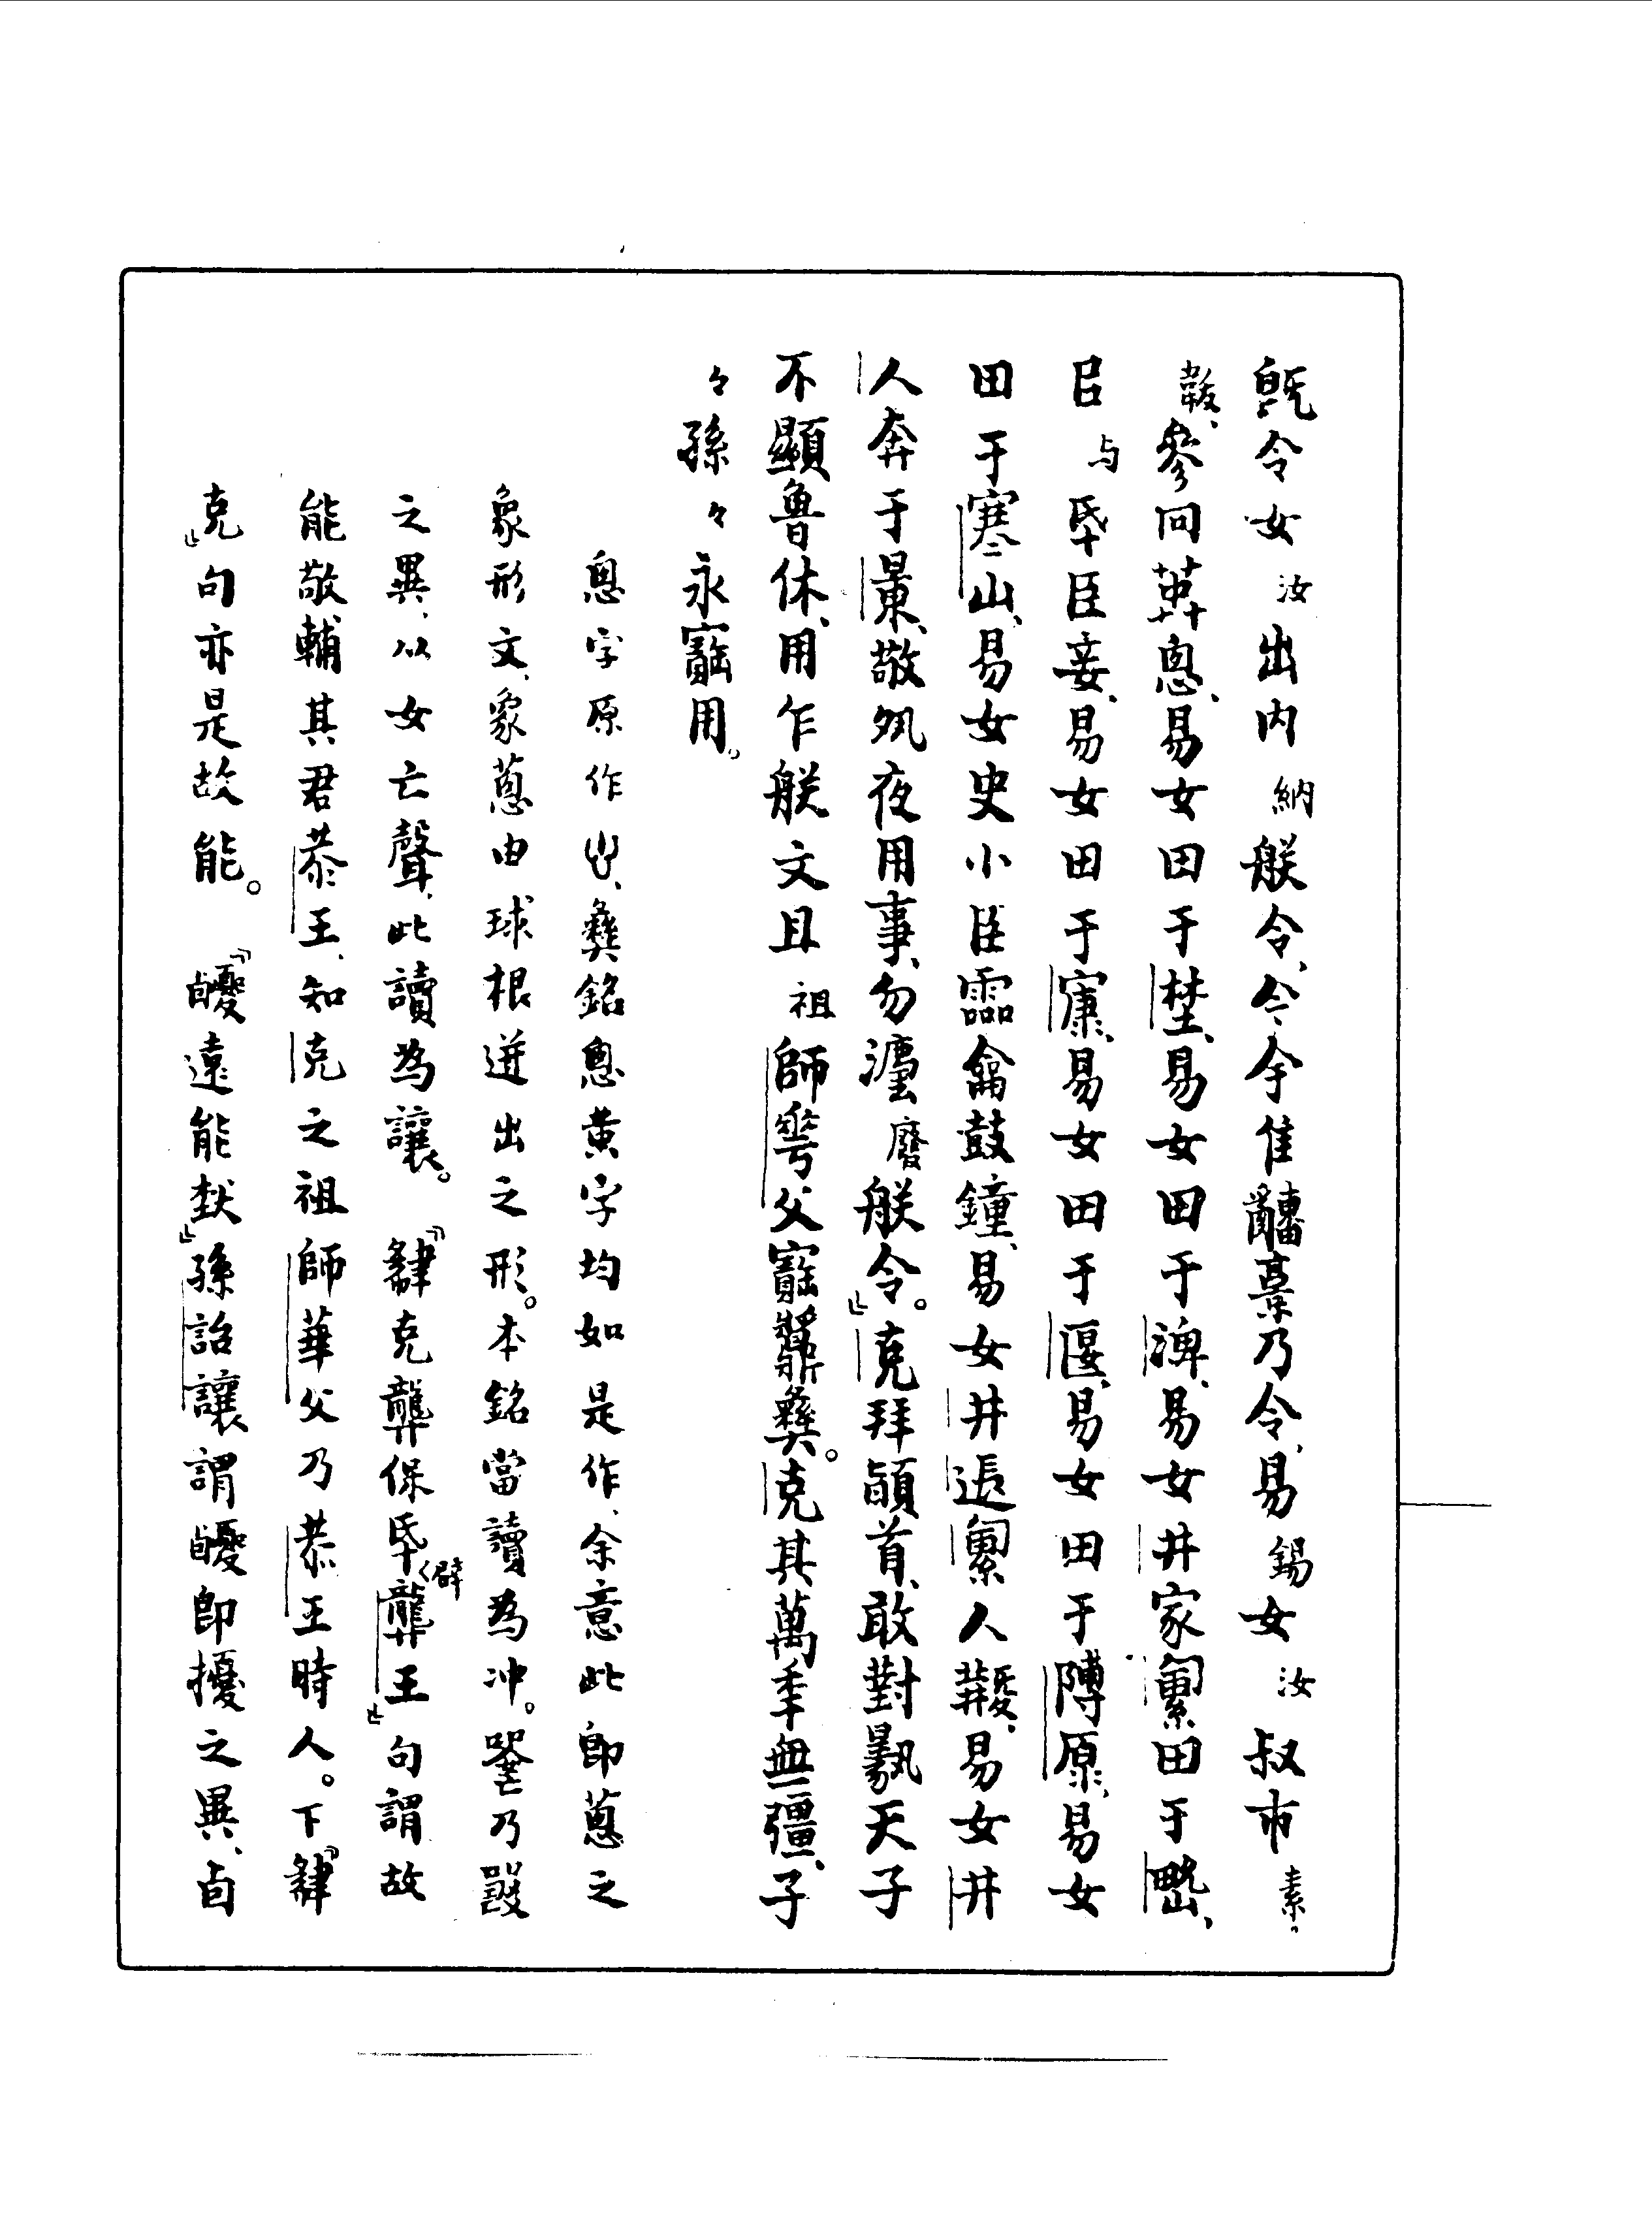 旣令女汝出內納朕令、今余隹𤕌𠭯乃令、易錫女汝叔巿素。
韍、參冋𦯼悤、易女田于埜、易女田于渒、易女井家𠣘田于㽙、
㠯与氒臣妾、易女田于𡪀、易女田于匽、易女田于陴原、易女
田于寒山、易女史小臣霝龠鼓鐘、易女井𢕌𠣘人𩞑、易女井
人奔于㬎、敬夙夜用事、勿灋廢朕令。』克拜𩒨首、敢對𩛥天子
不顯魯休、用乍朕文且祖師𠌶父寶𩱧彝。克其萬年無彊、子
々孫々永寶用。
悤字原作、彝銘悤黃字均如是作、余意此卽蔥之
象形文、象蔥由球根迸出之形。本銘當讀為冲。乃
之異、以女亡聲、此讀為讓。『𦘔克龏保氒辟龏王』句謂故
能敬輔其君恭王、知克之祖師華父乃恭王時人。下『𦘔
克』句亦是故能。『遠能㹜』孫詒讓謂卽擾之異、卣